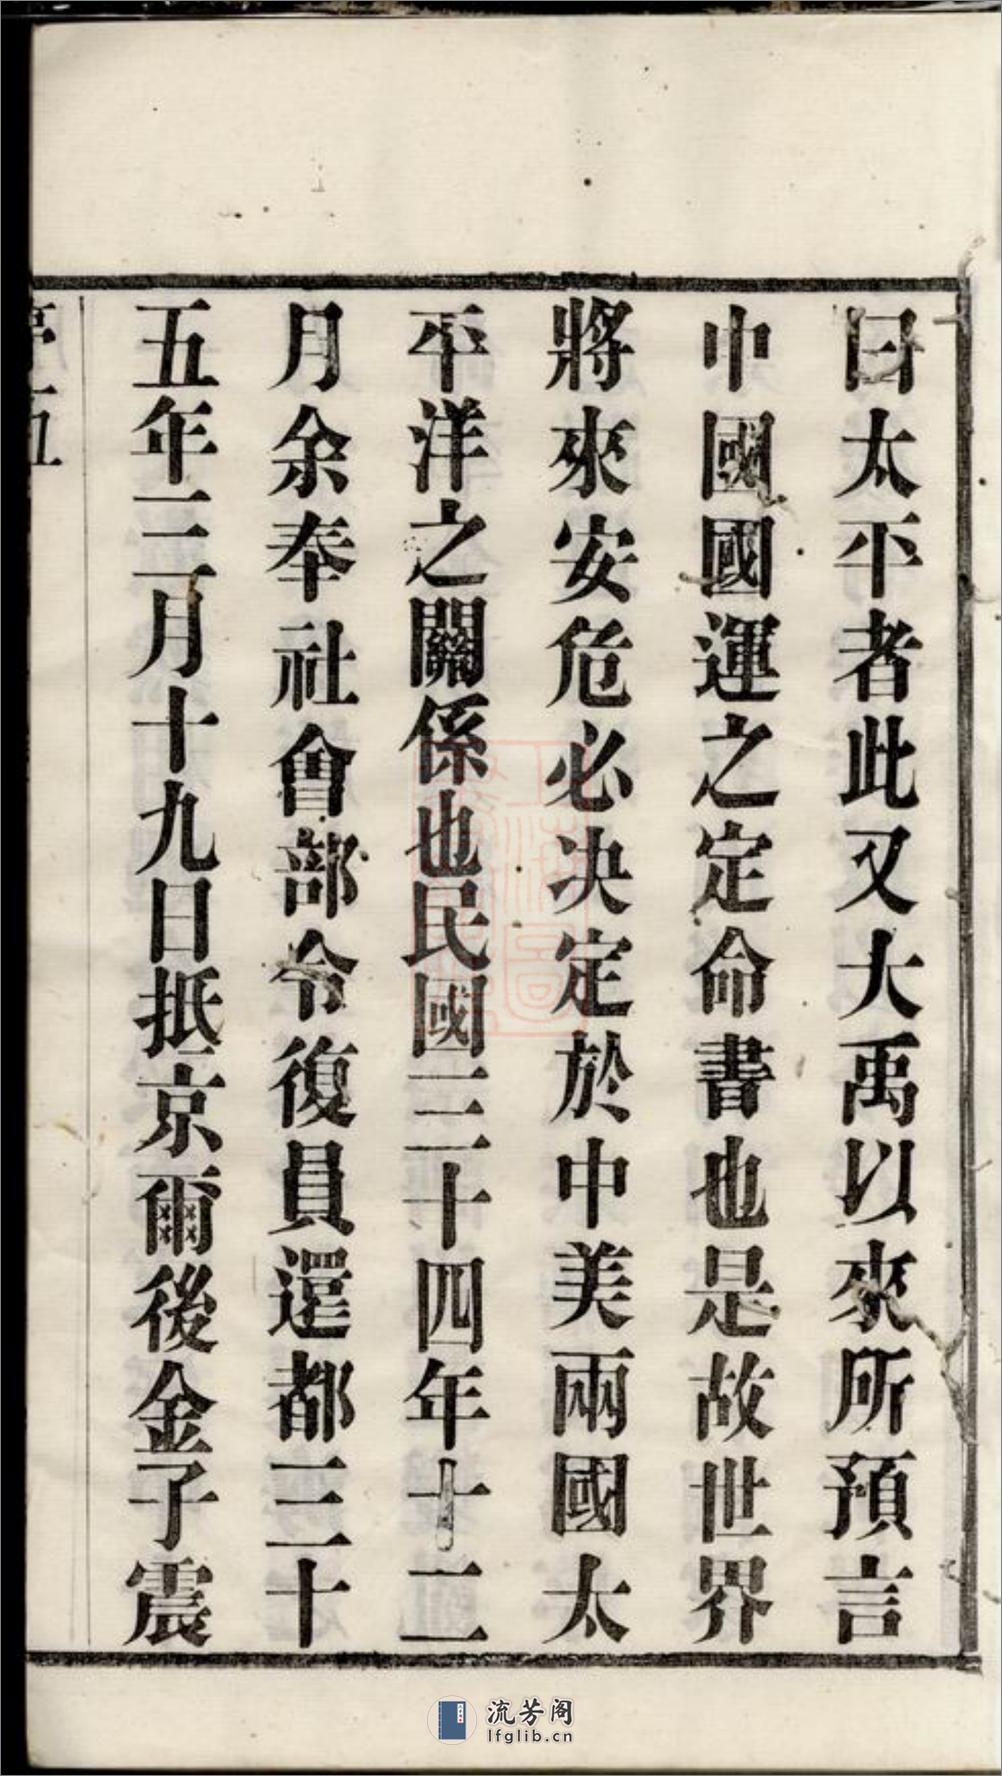 曰太平者此又大禹以來所預言
中國國運之定命書也是故世界
將來安危必決定於中美兩國太
平洋之關係也民國三十四年十二
月余奉社會部令復員還都三十
五年三月十九日抵京爾後金子震
流芳阁
lfglib.cn